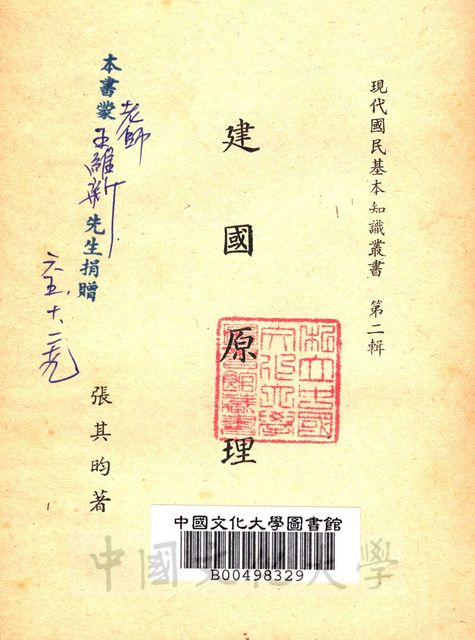 現代國民基本知識叢書 第二輯
建國原理
張其昀著
本書蒙 老師
王維新 先生捐贈
六五、十、二
私立中國
文化大學
圖書館藏書
中國文化大學圖書館
B00498329
中國文化大學